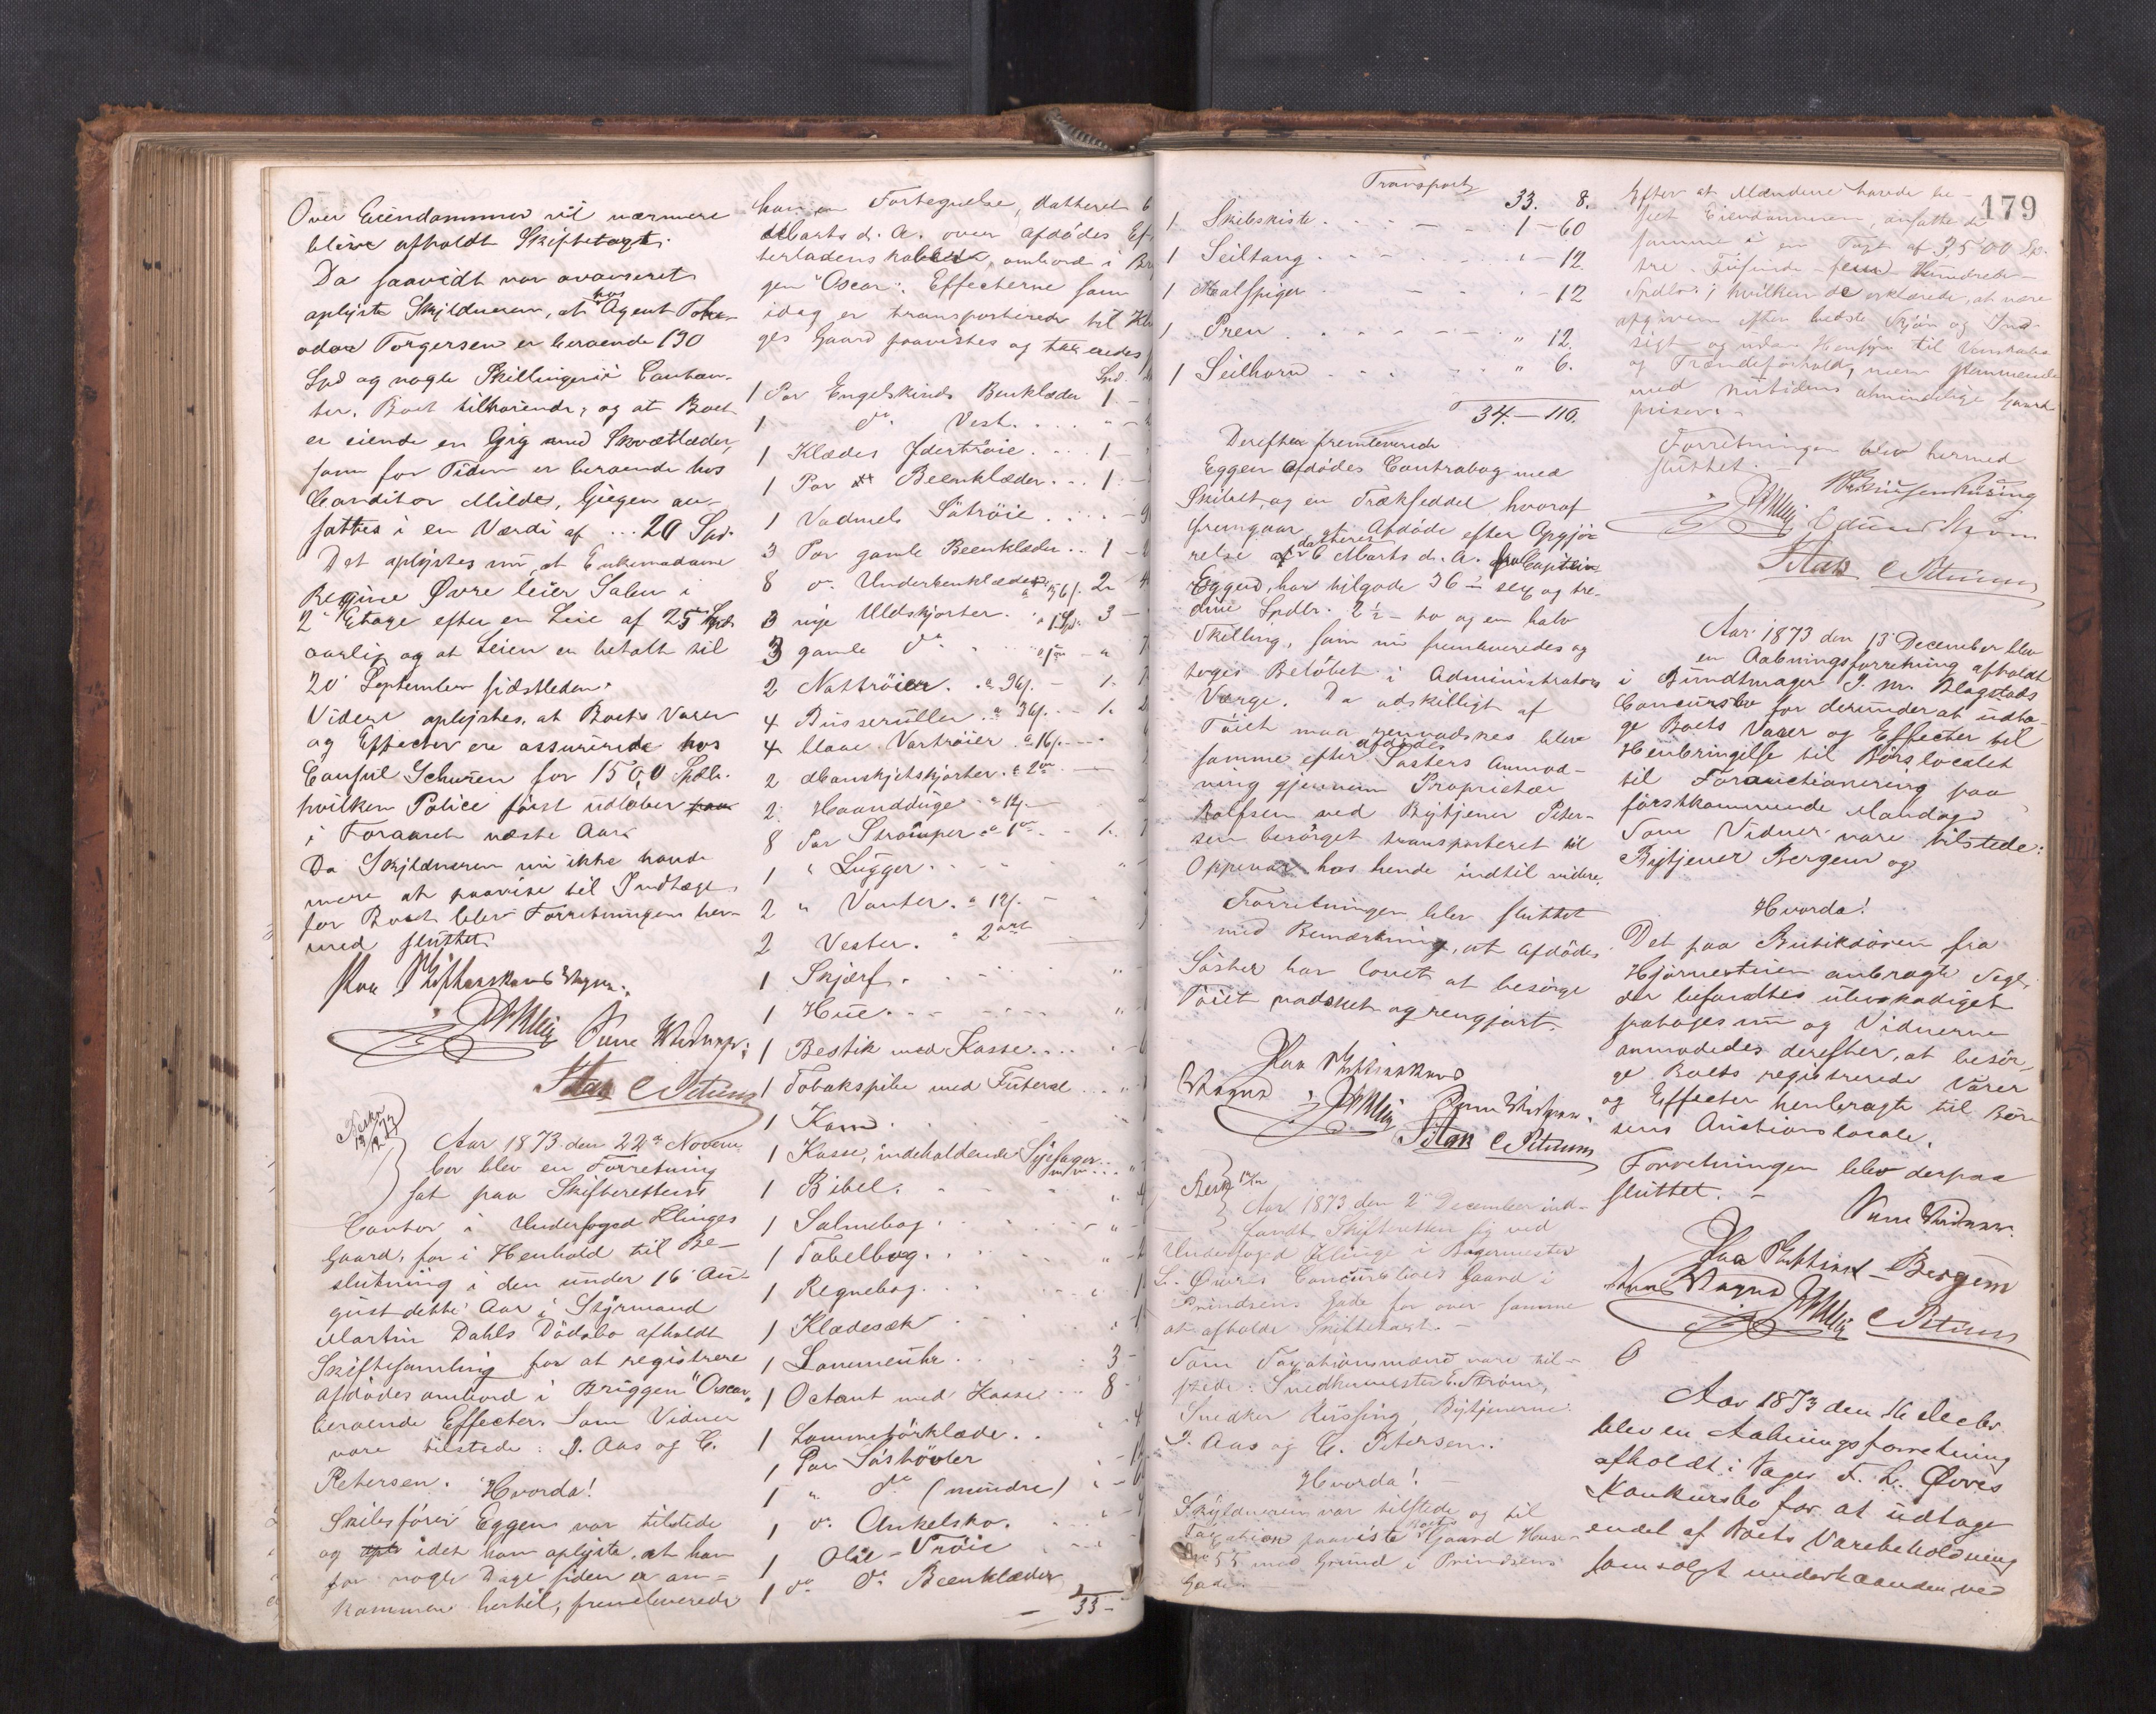 Over Eiendommen vil nærmere
blive afholdt Skiftetagt.
Da saavidt var avanseret
oplyste Skyldneren, at hos Agent
Torgersen er beroende 190
Spd og nogle Skillinger i Contan-
ter, Boet tilhørende, og at Boet
er eiende en Gig med Skvætlæder,
som for Tiden er beroende hos
Conditor Milde, Giegen an-
sattes i en Værdi af ... 20 Spd.
Det oplystes nu, at Enkemadame
Regine Øvre leier Salen i
2den Etage efter en Leie af 25 Spd
aarlig og at Leien er betalt til
20 September sidstleden.
Videre oplystes, at Boets Varer
og Effecter ere assurerede hos
Consul Schuren for 1500 Spdlr.
hvilken Police først udløber
i Foraaret næste Aar.
Da Skyldneren nu ikke havde
mere at paavise til Indtægt
for Boet blev Forretningen her-
med sluttet
Paa Skifteforvalterens Vegne.
Klinge Som Vidner:
P. Aas C Petersen
Aar 1873 den 22de Novem-
ber blev en Forretning
sat paa Skifterettens
Contor i Underfoged Klinges
Gaard, for i Henhold til Be-
slutning i den under 16 Au-
gust dette Aar i Styrmand
Martin Dahls Dødsbo afholdt
Skiftesamling for at registrere
afdødes ombord i Briggen "Oscar"
beroende Effecter. Som Vidner
vare tilstede: P. Aas og C.
Petersen. Hvorda!
Skibsfører Eggen var tilstede
og idet han oplyste, at han
for nogle Dage siden er an-
kommen hertil, fremleverede
han en Fortegnelse, datteret 6
Marts d. A. over afdødes Ef-
terladenskaber ombord i Brig-
gen "Oscar". Effecterne som
idag er transporterede til
ges Gaard paavistes og taxeredes
Spd.
1 Par Engelskinds Benklæder 1 -
1 do Vest. . . .
1 Klædes Ydertrøie. . . . 1 -
1 Par Beenklæder. . . 1 -
1 Vadmels Søtrøie . . . .
3 Par gamle Beenklæder. . 1 -
8 do. Underbenklæder à 36/. 2
3 nye Uldskjorter. à 1 Spd. 3 -
3 gamle do
2 Nattrøier. à 36/. - 1.
4 Busseruller à 36/. - 1.
4 blaae Vartrøier à 16/. -
2 Manskjetskjorter.
2 Haandduge à 12/. -
8 Par Strømper - 1.
1 " Lugger. -
2 " Vanter. à 12/. -
2 Vester.
1 Skjærf.
1 Hue. - -
1 Bestik med Kasse. . . .
1 Tobakspibe med Futeral . . .
1 Kam.
1 Kasse, indeholdende Sysager m m . .
1 Bibel.
1 Salmebog.
1 Tabelbog.
1 Regnebog.
1 Klædesæk
1 Lommeuhr. 3 -
1 Octant med Kasse . . 8 -
1 Lommetørklæde. .
1 Par Søstøvler
1 " do (mindre)
1 do. Ankelsko.
1 Olie-Trøie
1 do do Beenklæder
33 -
179
Transport 33. 8.
1 Skibskiste . . . . 1 - 60
1 Seiltang . . . . " - 12.
1 Malspiger . . " - 12
1 Pren . . . . " 12.
1 Seilhorn . . . " 6.
34. - 110.
Derefter fremleverede
Eggen afdødes Contrabog med
Skibet, og en Trækseddel hvoraf
fremgaar, at Afdøde efter Opgjø-
relse datteret 6 Marts d. A. fra Captein
Eggen, har tilgode 36 - sex og tre-
dive Spdlr. 2 ½ - to og en halv
Skilling, som nu fremleveredes og
toges Beløbet i Administrators
Værge. Da adskilligt af
Tøiet maa renvadskes blev
samme efter afdødes Søsters Anmod-
ning gjennem Proprietær
Rolfsen ved Bytjener Peter-
sen besørget transporteret til
Oppevar hos hende indtil videre.
Forretningen blev sluttet
med Bemærkning, at afdødes
Søster har lovet at besørge
Tøiet vadsket og rengjort.
Paa Skifteforvalterens
Vegne Klinge Som Vidner.
P. Aas C Petersen
Aar 1873 den 2den December ind-
fandt Skifteretten sig ved
Underfoged Klinge i Bagermester
L. Øvres Concursboes Gaard i
Prindsens Gade for over samme
at afholde Skiftetaxt. -
Som Taxationsmænd vare til-
stede: Snedkermester E. Strøm,
Snedker Rüssing, Bytjenerne
P. Aas og C. Petersen.
Hvorda! -
Skyldneren var tilstede og til
Taxation paaviste Boets Gaard Huse
No 55 med Grund i Prindsens
Gade.
Efter at Mændene havde be-
seet Eiendommen, ansatte de
samme i en Tagt af 3500 Sp.
tre - Tusinde - fem Hundrede -
Spdlr: i hvilken de erklærede, at være
afgiven efter bedste Skjøn og Ind-
sigt og uden Hensyn til Venskabs
og Frændeforhold, men stemmende
med nutidens almindelige Gaard
priser.
Forretningen blev hermed
sluttet. -
Rüsing
Klinge E Strøm
P. Aas C Petersen
Aar 1873 den 13 December blev
en Aabningsforretning afholdt
i Bundtmager P. M. Blagstads
Concursbo for derunder at udta-
ge Boets Varer og Effecter til
Henbringelse til Børslocalet
til Forauctionering paa
førstkommende Mandag.
Som Vidner vare tilstede:
Bytjener Bergem og
Hvorda!
Det paa Butikdøren fra
Hjørnestuen anbragte Segl,
der befandtes ubeskadiget
fratoges nu og Vidnerne
anmodedes derefter, at besør-
ge Boets registrerede Varer
og Effecter henbragte til Bør-
sens Auctionslocale.
Forretningen blev derpaa
sluttet. -
Som Vidner.
Paa Skifteforvalterens Bergem
Vegne Klinge C Petersen
Aar 1873 den 16 Decbr.
blev en Aabningsforretning
afholdt i Bager F. L. Øvres
Konkursbo for at udtage
endel af Boets Varebeholdning
som solgt underhaanden ved